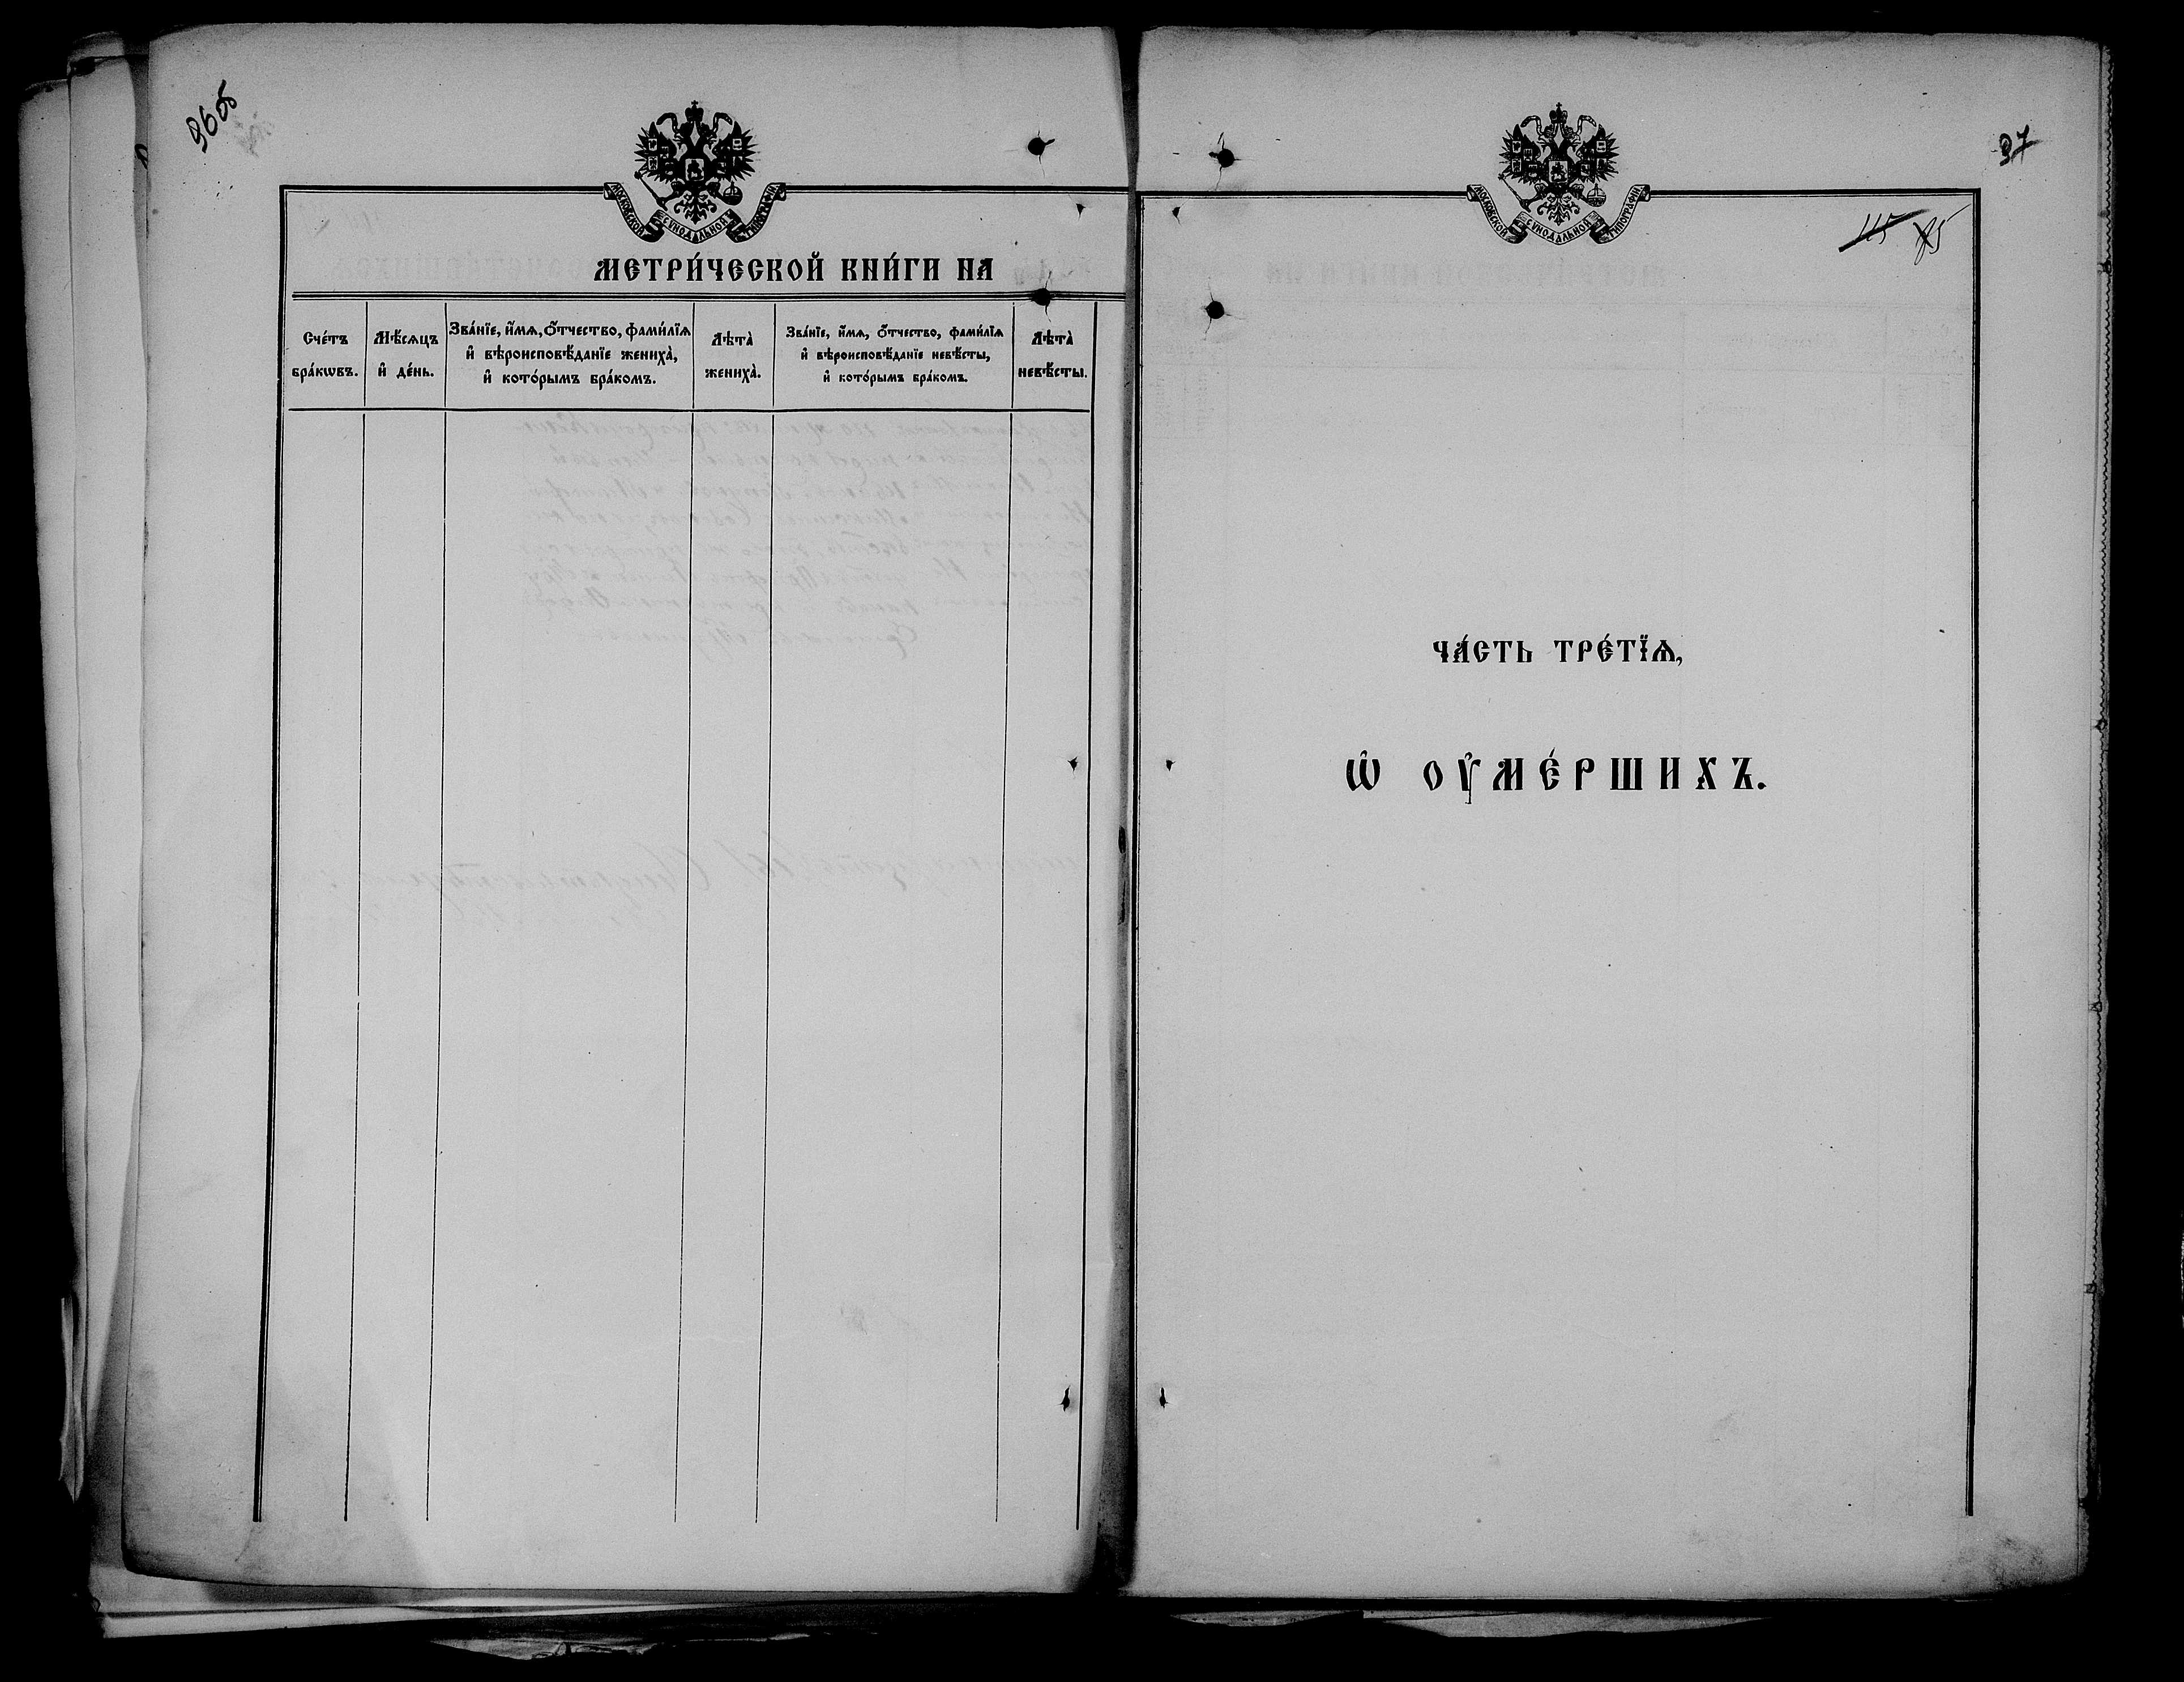 96об
МОСКОВСКОЙ СѴНОДАЛЬНОЙ ТИПОГРАФІИ
МЕТРИ́ЧЕСКОЙ КНИ́ГИ НА
Сче́тъ бра́кѡвъ.
Мѣ́сѧцъ и҆ де́нь.
Зва́нїе, и҆́мѧ, ѻ҆́тчество, фами́лїѧ
и҆ вѣроисповѣ́данїе жениха̀,
и҆ кото́рымъ бра́комъ.
Лѣта̀ жениха̀.
Зва́нїе, и҆́мѧ, ѻ҆́тчество, фами́лїѧ
и҆ вѣроисповѣ́данїе невѣ́сты,
и҆ кото́рымъ бра́комъ.
Лѣта̀ невѣ́сты.
97
МОСКОВСКОЙ СѴНОДАЛЬНОЙ ТИПОГРАФІИ
115
ЧА́СТЬ ТРЕ́ТЇѦ,
Ѡ҆ ОУ҆МЕ́РШИХЪ.